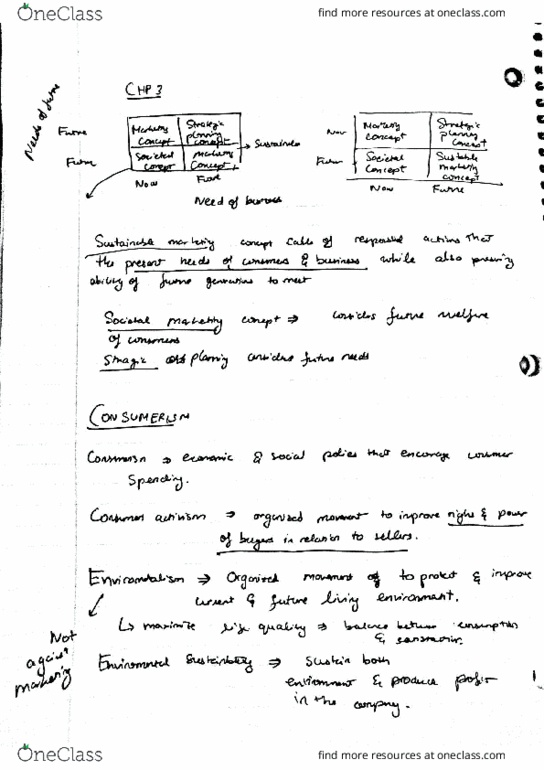 OneClass
find more resources at oneclass.com
CHP 3
Needs of
Future
Marketing concept
Strategic planning concept
Sustainable
Future
Societal concept
Marketing concept
Now
Future
Need of business
Now
Marketing concept
Strategic planning concept
Future
Societal concept
marketing concept
Now
Future
Sustainable marketing concept calls of responsible actions that
the present needs of consumers & business while also
ability of future generations to meet
Societal marketing concept ⇒ considers future welfare
of consumers
planning considers future needs
CONSUMERISM
⇒ economic & social policies that encourage consumer
Spending.
Consumer activism ⇒ organized movement to improve right & power
of buyers in relation to sellers.
⇒ Organized movement of to protect & improve
current & future living environment.
↳ maximize life quality ⇒ balance between consumption
&
Not against marketing
Environmental Sustainability ⇒ Sustain both
environment & produce profit
in the company.
OneClass
find more resources at oneclass.com